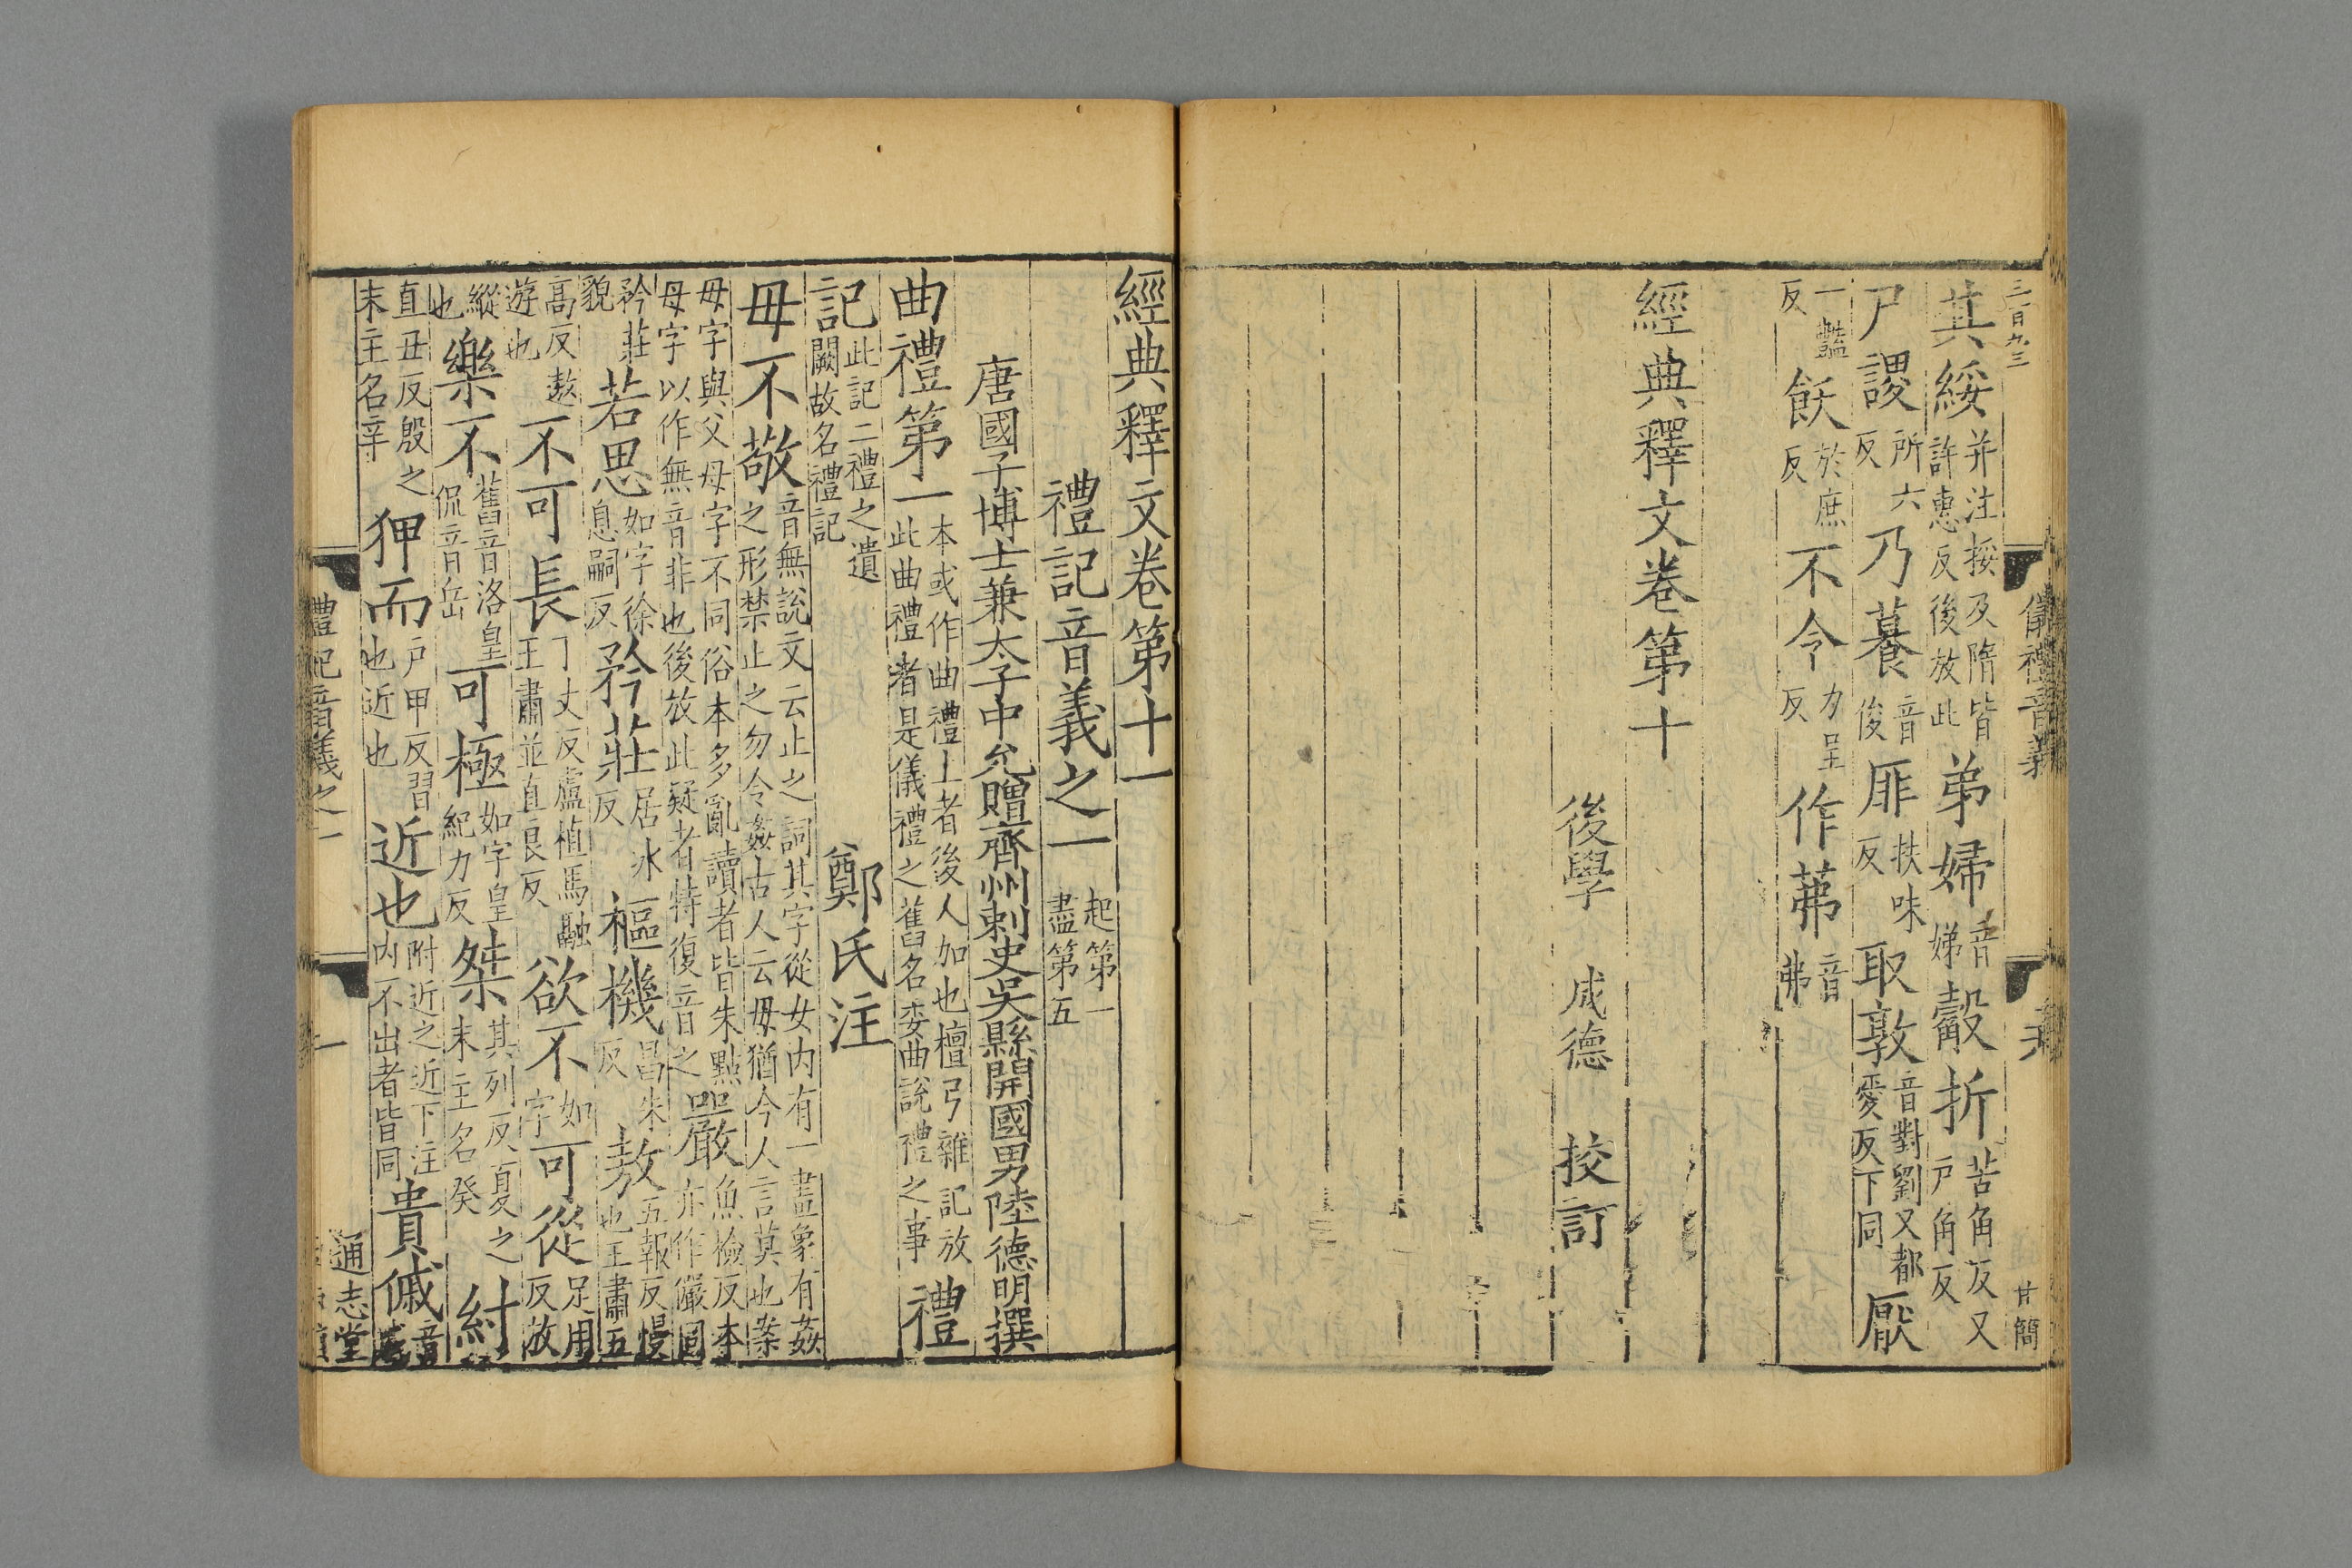 三百九三
儀禮音義
廿簡
其綏并注挼及隋皆許恵反後放此弟婦音娣觳折苦角反又戶角反
尸謖所六反乃養音俊厞扶味反取敦音對劉又都愛反下同厭
一豔反飫於庶反不令力呈反作茀音弗
經典釋文卷第十
後學 成德 挍訂
經典釋文卷第十一
禮記音義之一起第一盡第五
唐國子博士兼太子中允贈齊州刺史吳縣開國男陸德明撰
曲禮第一本或作曲禮上者後人加也檀弓雜記放此曲禮者是儀禮之舊名委曲說禮之事禮
記此記二禮之遺闕故名禮記鄭氏注
毋不敬音無說文云止之詞其字從女内有一畫象有姦之形禁止之勿令姦古人云毋猶今人言莫也案
毋字與父母字不同俗本多亂讀者皆朱點母字以作無音非也後放此疑者特復音之嚴魚檢反本亦作儼同
矜莊貌若思如字徐息嗣反矜莊居冰反樞機昌朱反敖五報反慢也王肅五
高反遨遊也不可長丁丈反盧植馬融王肅並直良反欲不如字可從足用反放
縱也樂不舊音洛皇侃音岳可極如字皇紀力反桀其列反夏之末主名癸紂
直丑反殷之末主名辛狎而戶甲反習也近也近也附近之近下注内不出者皆同貴戚音
禮記音義之一
一
通志堂